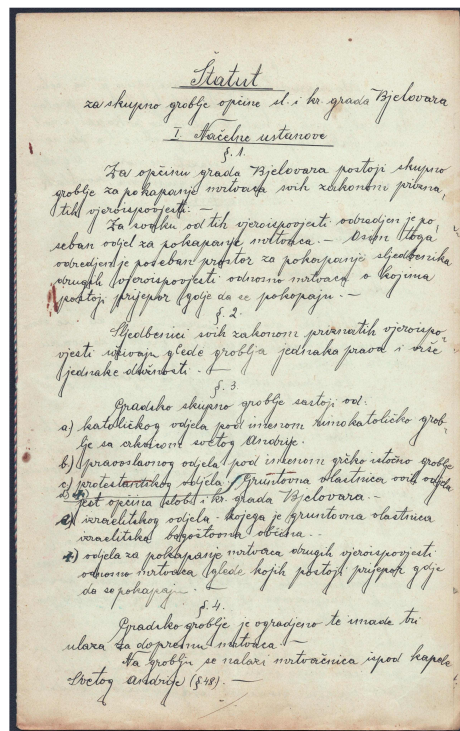 Štatut
za skupno groblje općine sl. i kr. grada Bjelovara
I. Načelne ustanove
§. 1.
Za općinu grada Bjelovara postoji skupno
groblje za pokapanje mrtvaca svih zakonom prizna„
tih vjeroispovjesti. —
Za svaku od tih vjeroispovjesti odredjen je po„
seban odjel za pokapanje mrtvaca. — Osim toga
odredjen je poseban prostor za pokapanje sljedbenika
drugih vjeroispovjesti odnosno mrtvaca o kojima
postoji prijepor gdje da se pokopaju. —
§. 2.
Sljedbenici svih zakonom priznatih vjeroispo„
vjesti uživaju glede groblja jednaka prava i vrše
jednake dužnosti. —
§. 3.
Gradsko skupno groblje sastoji od:
a) katoličkog odjela pod imenom rimokatoličko grob„
lje sa crkvicom svetog Andrije.
b) pravoslavnog odjela pod imenom grčko istočno groblje
c) protestantskog odjela. Gruntovna vlastnica ovih odjela
jest općina slob. i kr. grada Bjelovara. —
d) izraelitskog odjela kojega je gruntovna vlastnica
izraelitska bogoštovna općina. —
odjela za pokapanje mrtvaca drugih vjeroispovjesti
odnosno mrtvaca glede kojih postoji prijepor gdje
da se pokapaju. —
§. 4.
Gradsko groblje je ogradjeno te imade tri
ulaza za dopremu mrtvaca. —
Na groblju se nalazi mrtvačnica ispod kapele
Svetog Andrije (§ 48). —